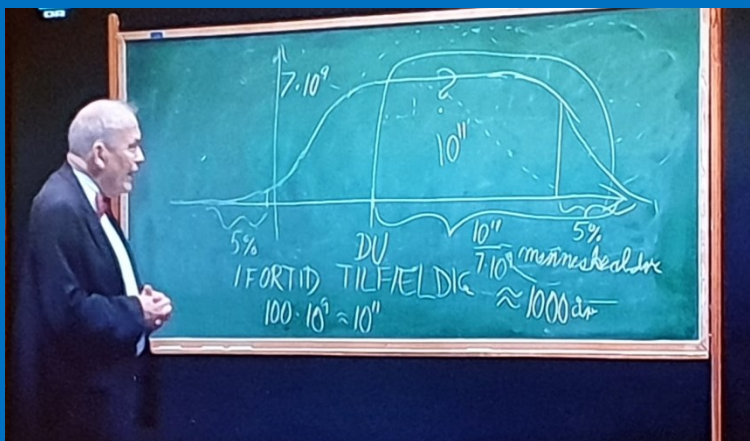 DR
7·10⁹
?
10¹¹
5%
DU
10¹¹
7·10⁹
menneskealdre
5%
I FORTID TILFÆLDIG
≈ 1000 år
100·10⁹ ≈ 10¹¹